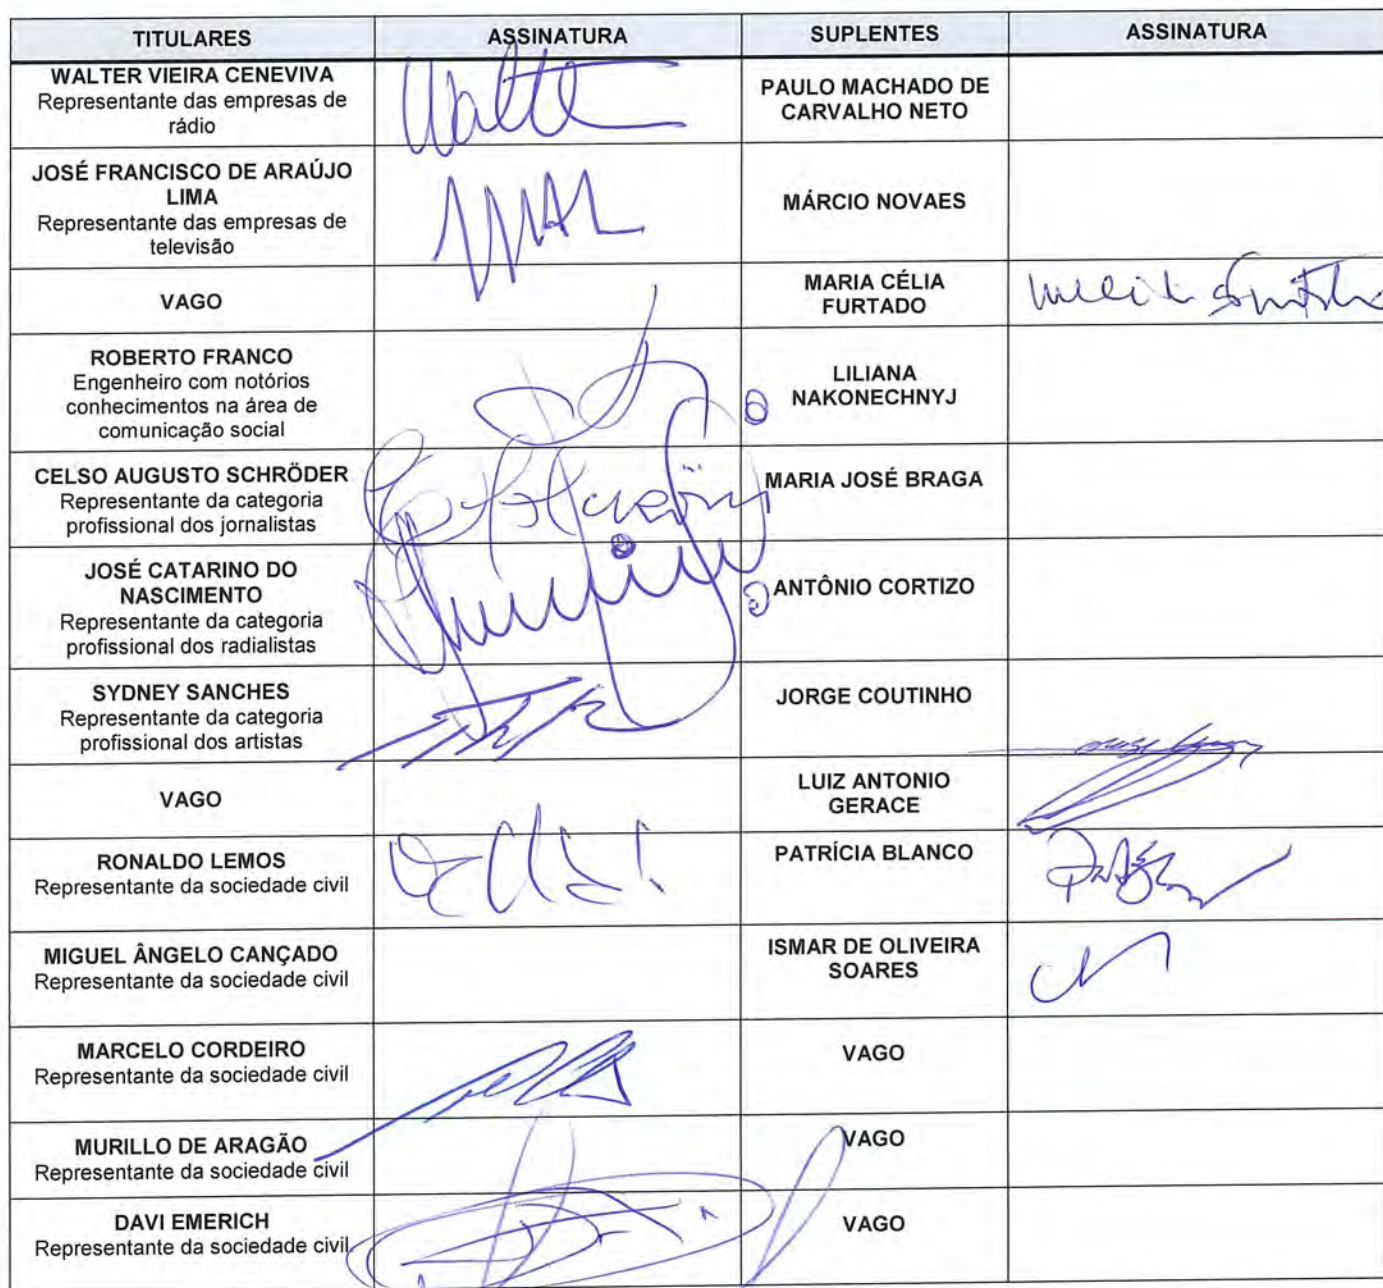 TITULARES ASSINATURA SUPLENTES ASSINATURA
WALTER VIEIRA CENEVIVA
Representante das empresas de
rádio
Walte
PAULO MACHADO DE
CARVALHO NETO
JOSÉ FRANCISCO DE ARAÚJO
LIMA
Representante das empresas de
televisão
MÁRCIO NOVAES
VAGO
MARIA CÉLIA
FURTADO
ROBERTO FRANCO
Engenheiro com notórios
conhecimentos na área de
comunicação social
LILIANA
NAKONECHNYJ
CELSO AUGUSTO SCHRÖDER
Representante da categoria
profissional dos jornalistas
MARIA JOSÉ BRAGA
JOSÉ CATARINO DO
NASCIMENTO
Representante da categoria
profissional dos radialistas
ANTÔNIO CORTIZO
SYDNEY SANCHES
Representante da categoria
profissional dos artistas
JORGE COUTINHO
VAGO
LUIZ ANTONIO
GERACE
RONALDO LEMOS
Representante da sociedade civil
PATRÍCIA BLANCO
MIGUEL ÂNGELO CANÇADO
Representante da sociedade civil
ISMAR DE OLIVEIRA
SOARES
MARCELO CORDEIRO
Representante da sociedade civil
VAGO
MURILLO DE ARAGÃO
Representante da sociedade civil
VAGO
DAVI EMERICH
Representante da sociedade civil
VAGO